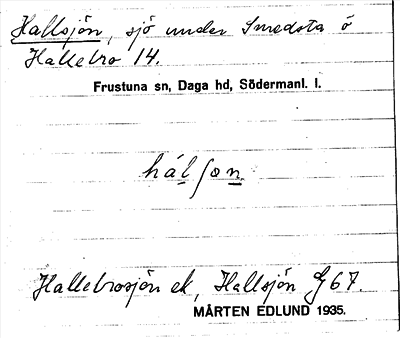 Hallsjön, sjö under Smedsta o
Hallebro 14.
Frustuna sn, Daga hd, Södermanl. l.
hálʃon
Hallebrosjön ek, Hallsjön G67.
MÅRTEN EDLUND 1935.